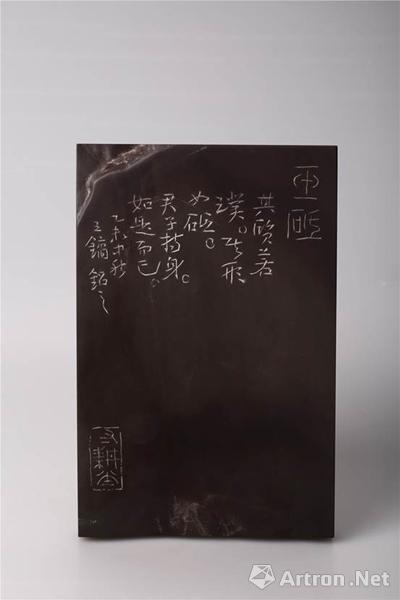 其質若
璞。其形
如砥。
君子持身。
如是而已。
乙未中秋
王鏞銘之
Artron.Net